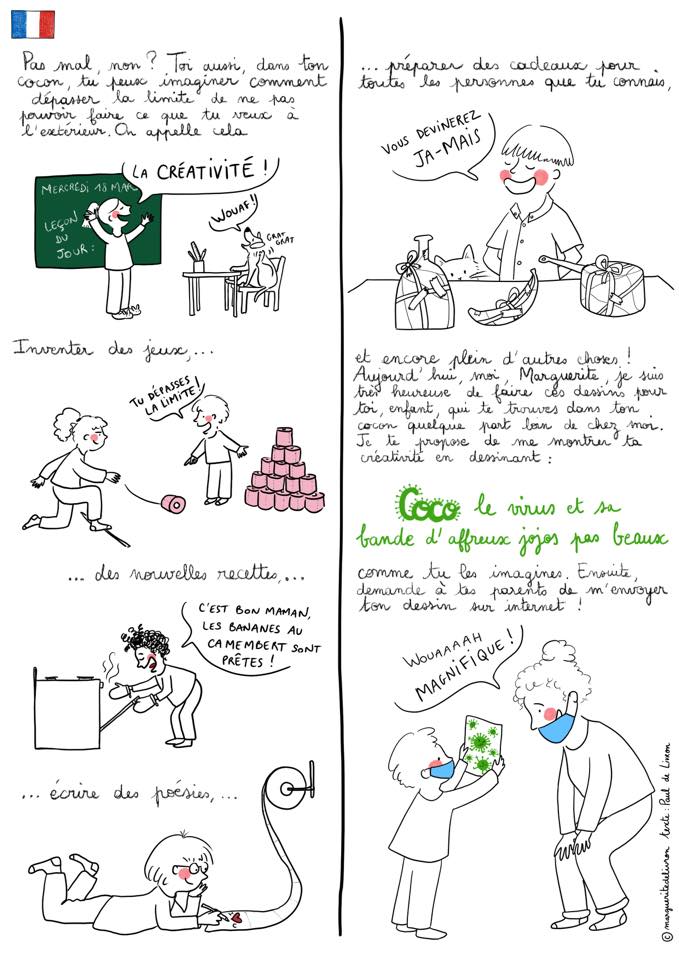 Pas mal, non ? Toi aussi, dans ton
cocon, tu peux imaginer comment
dépasser la limite de ne pas
pouvoir faire ce que tu veux à
l'extérieur. On appelle cela
LA CRÉATIVITÉ !
MERCREDI 18 MAR
LEÇON
DU
JOUR :
WOUAF !!
GRAT
GRAT
Inventer des jeux,...
TU DÉPASSES
LA LIMITE !
... des nouvelles recettes,...
C'EST BON MAMAN,
LES BANANES AU
CAMEMBERT SONT
PRÊTES !
... écrire des poésies,...
... préparer des cadeaux pour
toutes les personnes que tu connais,
VOUS DEVINEREZ
JA-MAIS
et encore plein d'autres choses !
Aujourd'hui, moi, Marguerite, je suis
très heureuse de faire ces dessins pour
toi, enfant, qui te trouves dans ton
cocon quelque part loin de chez moi.
Je te propose de me montrer ta
créativité en dessinant :
Coco le virus et sa
bande d'affreux jojos pas beaux
comme tu les imagines. Ensuite,
demande à tes parents de m'envoyer
ton dessin sur internet !
WOUAAAAH
MAGNIFIQUE !
© margueritedelivron texte : Paul de Livron